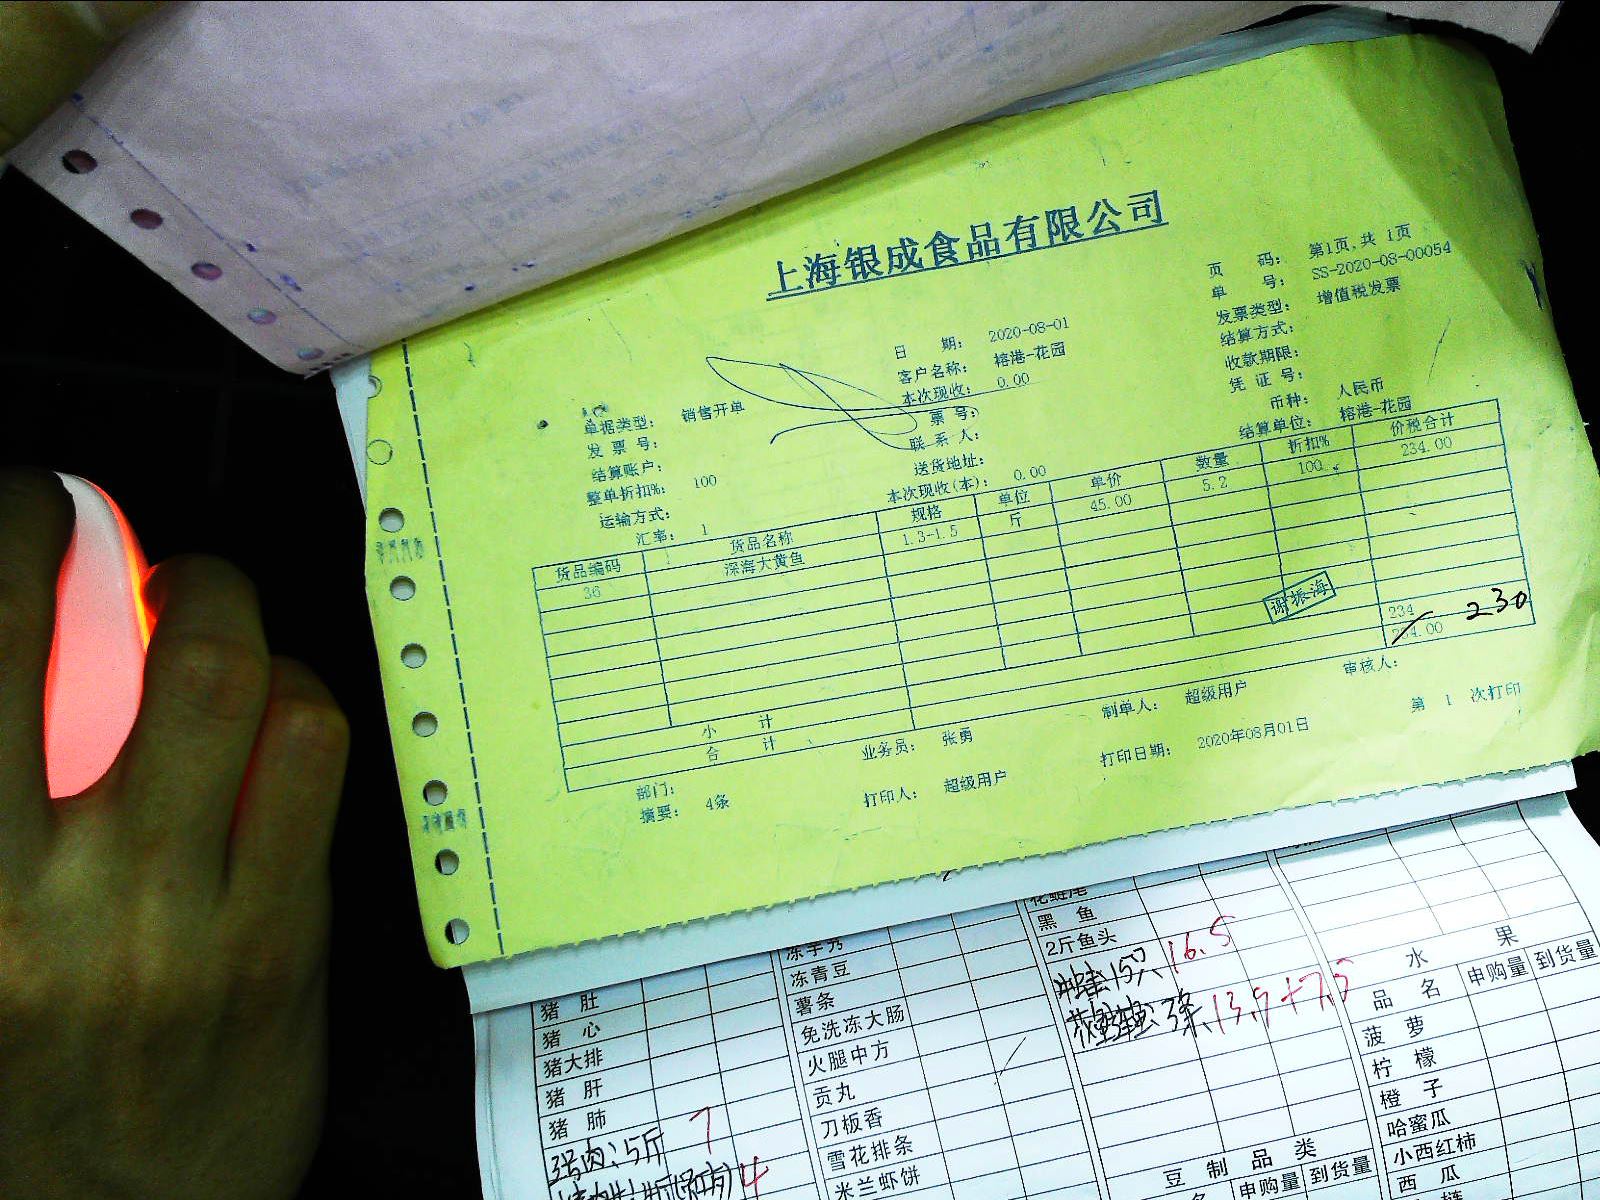 上海银成食品有限公司
页 码: 第1页,共 1页
单 号: SS-2020-08-00054
发票类型: 增值税发票
结算方式:
收款期限:
凭 证 号:
币种: 人民币
结算单位: 榕港-花园
日 期: 2020-08-01
客户名称: 榕港-花园
本次现收: 0.00
票 号:
联 系 人:
送货地址:
本次现收(本): 0.00
单据类型: 销售开单
发 票 号:
结算账户:
整单折扣%: 100
运输方式:
汇率: 1
货品编码 货品名称 规格 单位 单价 数量 折扣% 价税合计
36 深海大黄鱼 1.3-1.5 斤 45.00 5.2 100 234.00
谢振海
小 计 234
合 计 234.00 230
部门: 业务员: 张勇 制单人: 超级用户 审核人:
摘要: 4条 打印人: 超级用户 打印日期: 2020年08月01日 第 1 次打印
猪 肚
猪 心
猪大排
猪 肝
猪 肺
5斤 7
4
冻青豆
薯条
免洗冻大肠
火腿中方
贡丸
刀板香
雪花排条
米兰虾饼
花鲢尾
黑 鱼
2斤鱼头
15只 16.5
3条 13.9+7.5
豆 制 品 类
名 申购量 到货量
水 果
品 名 申购量 到货量
菠 萝
柠 檬
橙 子
哈蜜瓜
小西红柿
西 瓜